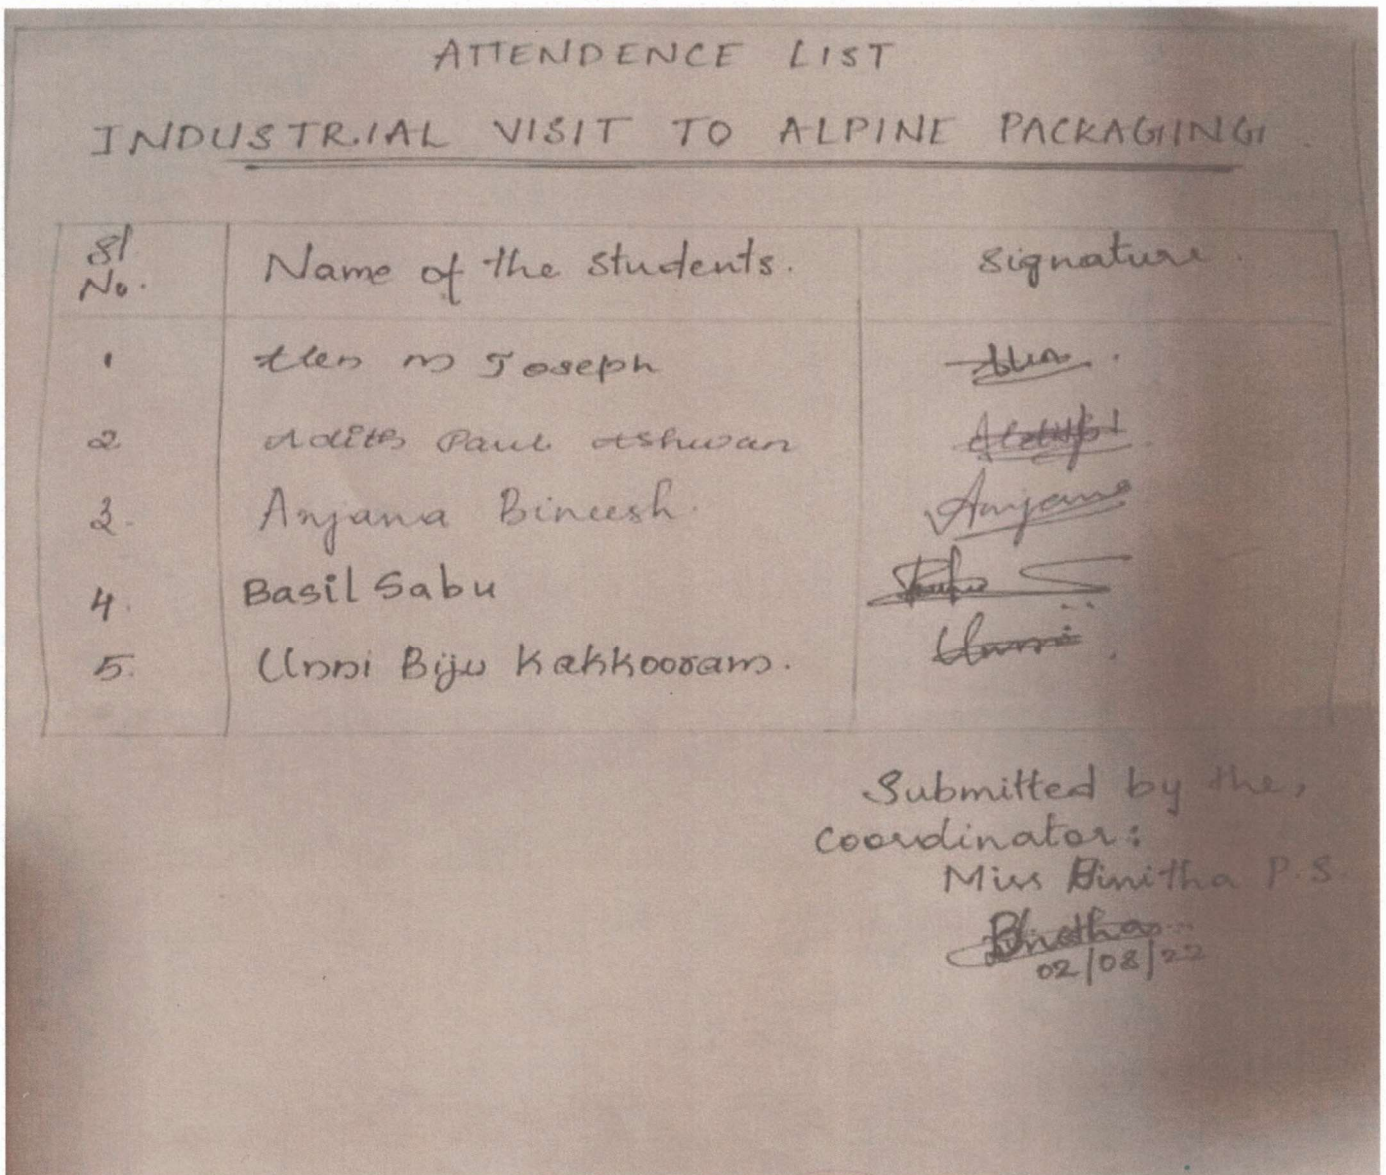 ATTENDENCE LIST
INDUSTRIAL VISIT TO ALPINE PACKAGING.
Sl No. Name of the students. Signature.
1 Alen M Joseph Alen.
2 Adith Paul Ashwan
3. Anjana Bineesh. Anjana
4. Basil Sabu
5. Unni Biju Kakkooram. Unni.
Submitted by the,
coordinator:
Miss Binitha P.S.
Binitha
02/08/22